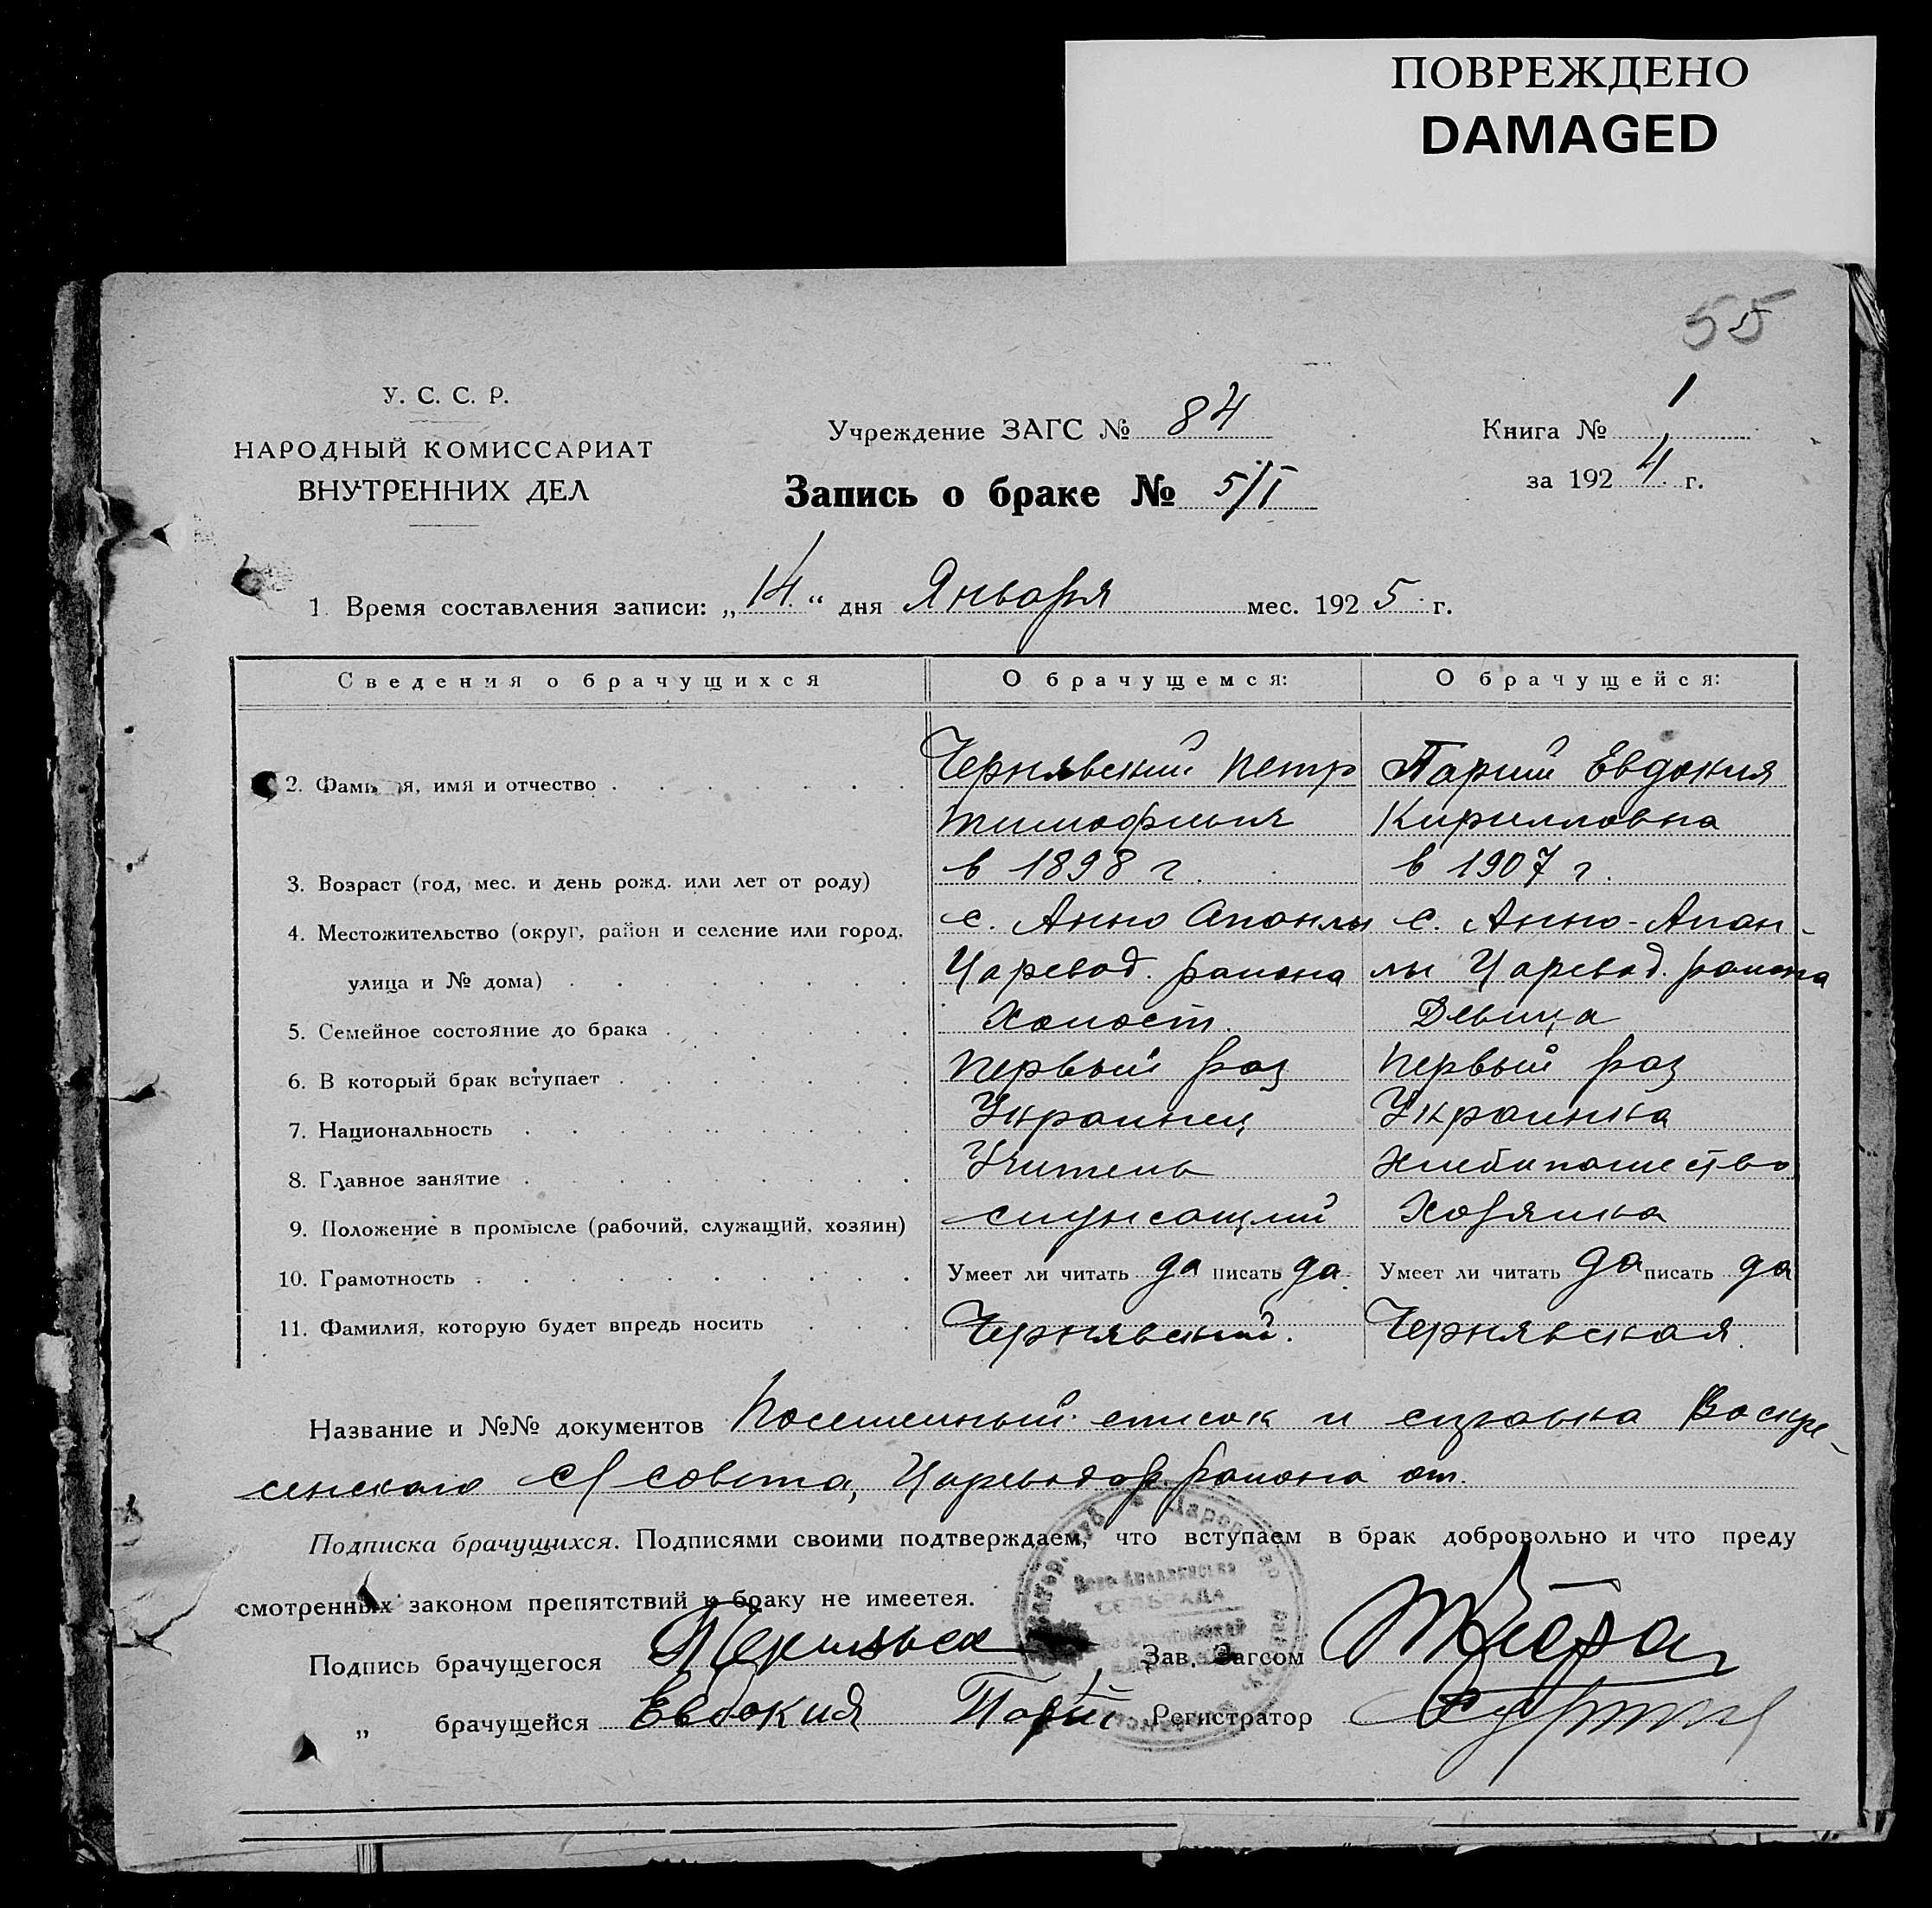 ПОВРЕЖДЕНО
DAMAGED
55
У. С. С. Р.
НАРОДНЫЙ КОМИССАРИАТ
ВНУТРЕННИХ ДЕЛ
Учреждение ЗАГС № 84
Запись о браке № 5/I
Книга № 1
за 1924 г.
1. Время составления записи: „14“ дня Января мес. 1925 г.
Сведения о брачущихся О брачущемся: О брачущейся:
2. Фамилия, имя и отчество Чернявский Петр Парий Евдокия
Тимофиевич Кирилловна
3. Возраст (год, мес. и день рожд. или лет от роду) в 1898 г. в 1907 г.
4. Местожительство (округ, район и селение или город, с. Анно Апонлы с. Анно-Апан-
улица и № дома) Царевод. района лы Царевод. района
5. Семейное состояние до брака Холост. Девица
6. В который брак вступает Первый раз Первый раз
7. Национальность Украинец Украинка
8. Главное занятие Учитель Хлебопашество
9. Положение в промысле (рабочий, служащий, хозяин) служащий Хозяйка
10. Грамотность Умеет ли читать да писать да. Умеет ли читать да писать да
11. Фамилия, которую будет впредь носить Чернявский. Чернявская.
Название и №№ документов Посемейный список и справка Воскре-
сенского с/совета, Царевод. района от.
Подписка брачущихся. Подписями своими подтверждаем, что вступаем в брак добровольно и что преду
смотренных законом препятствий к браку не имеетея.
Подпись брачущегося Зав. Загсом
„ брачущейся Евдокия Парий Регистратор
СЕЛЬРАДА